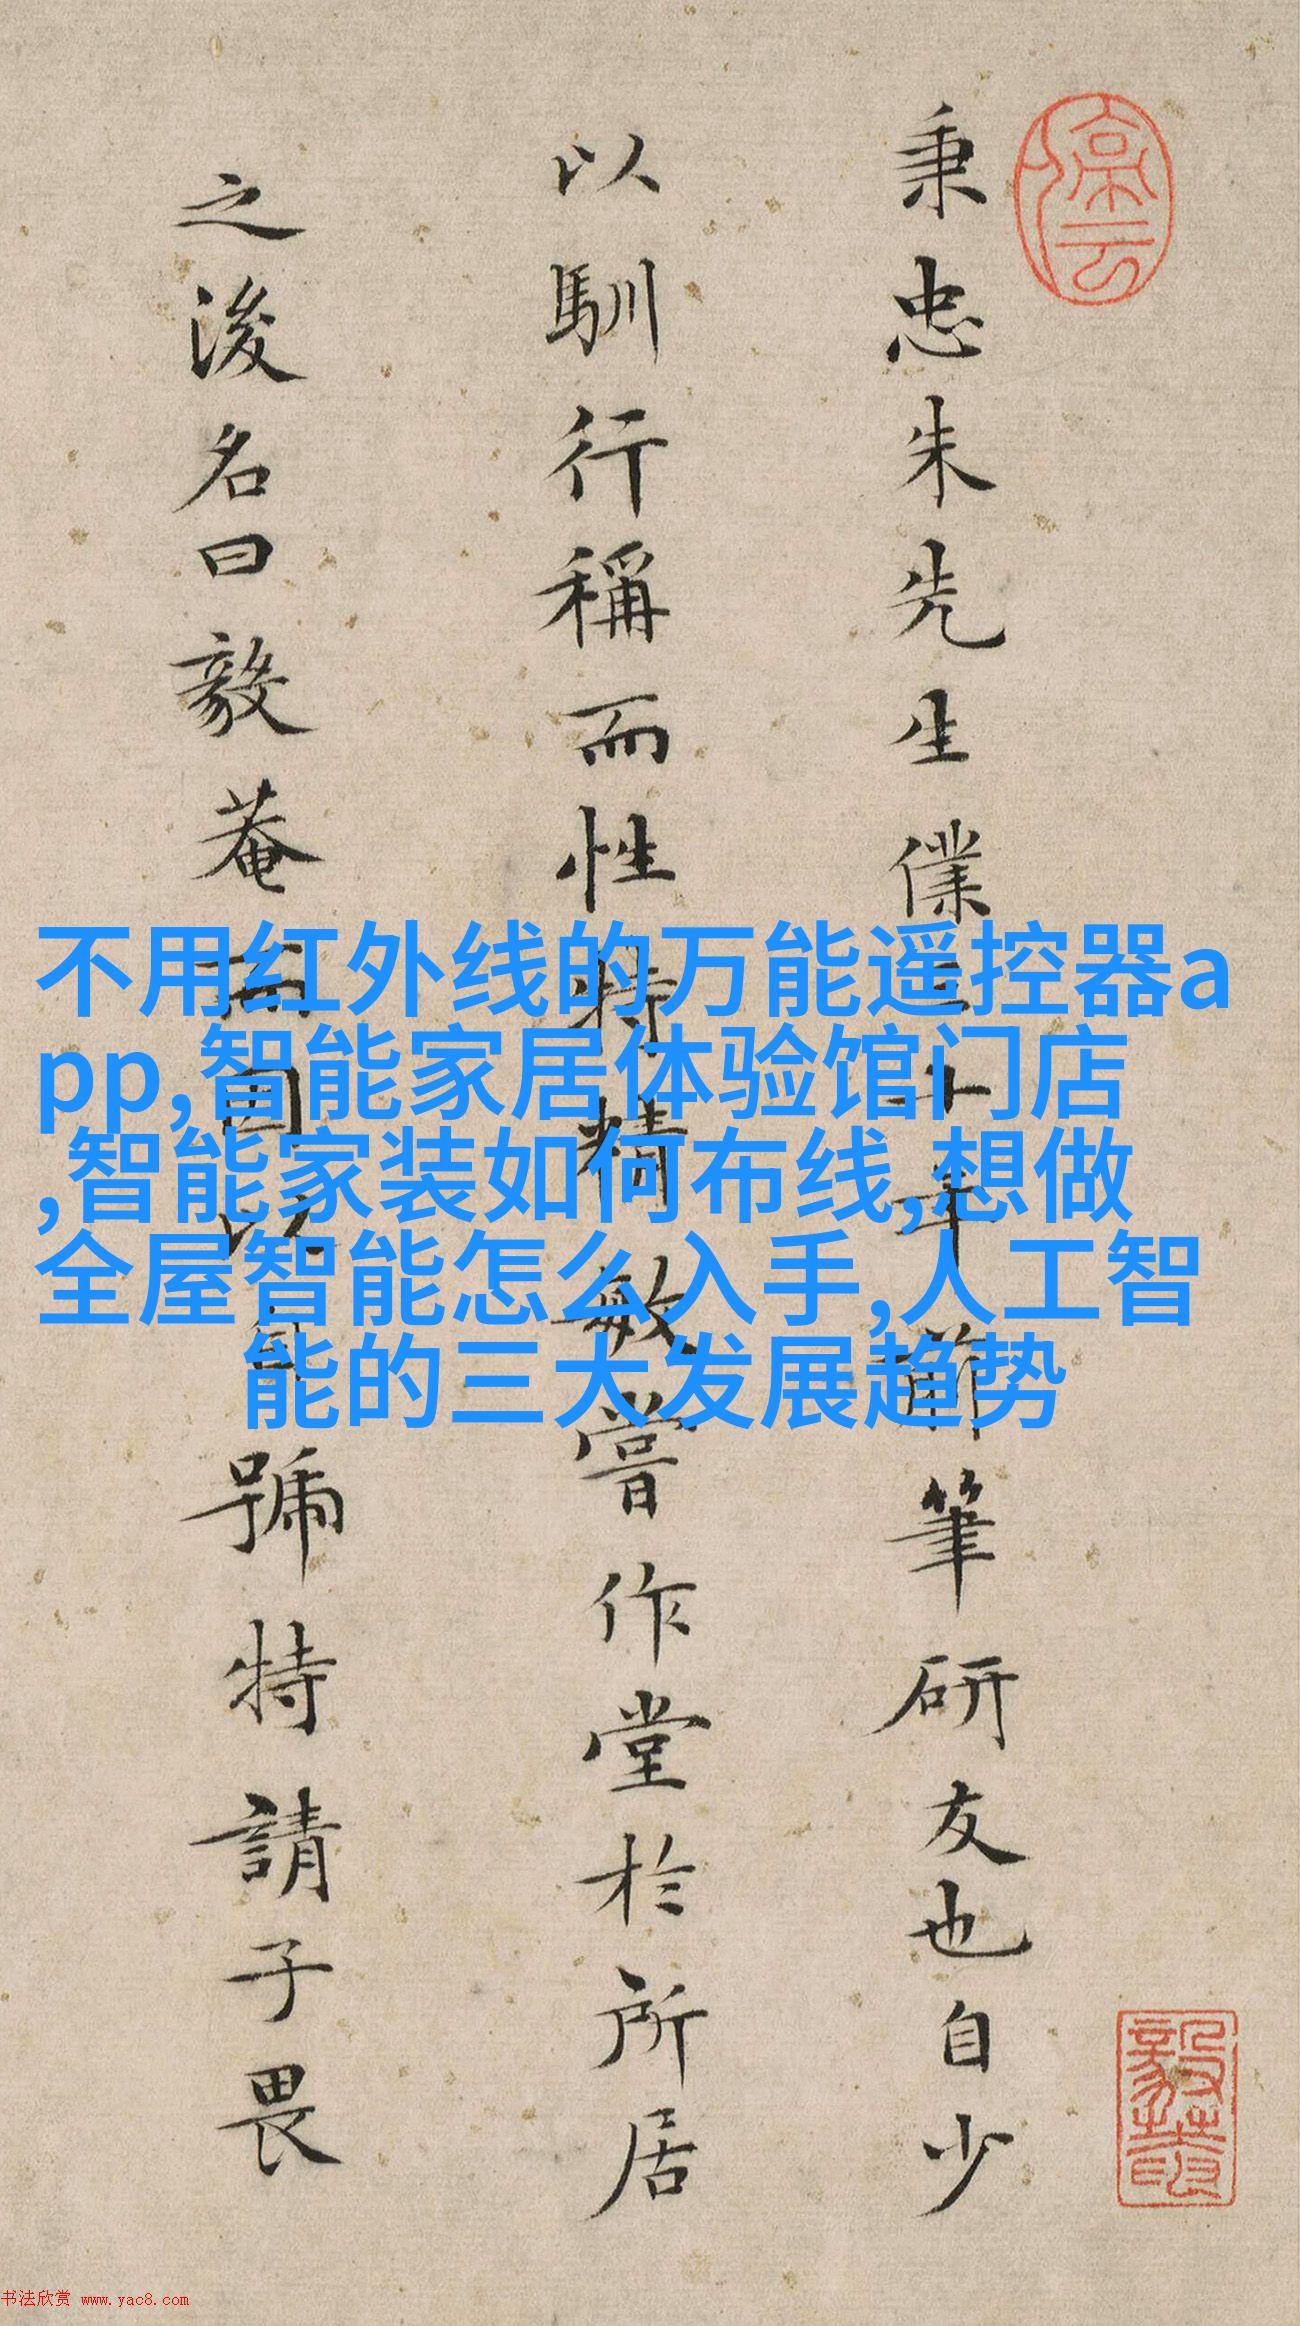 停云
秉忠朱先生僕十年前筆研友也自少
以馴行稱而性特精敏嘗作堂於所居
之後名曰毅菴而因以自號特請子畏
不用红外线的万能遥控器a
pp,智能家居体验馆门店
,智能家装如何布线,想做
全屋智能怎么入手,人工智
能的三大发展趋势
书法欣赏 www.yac8.com